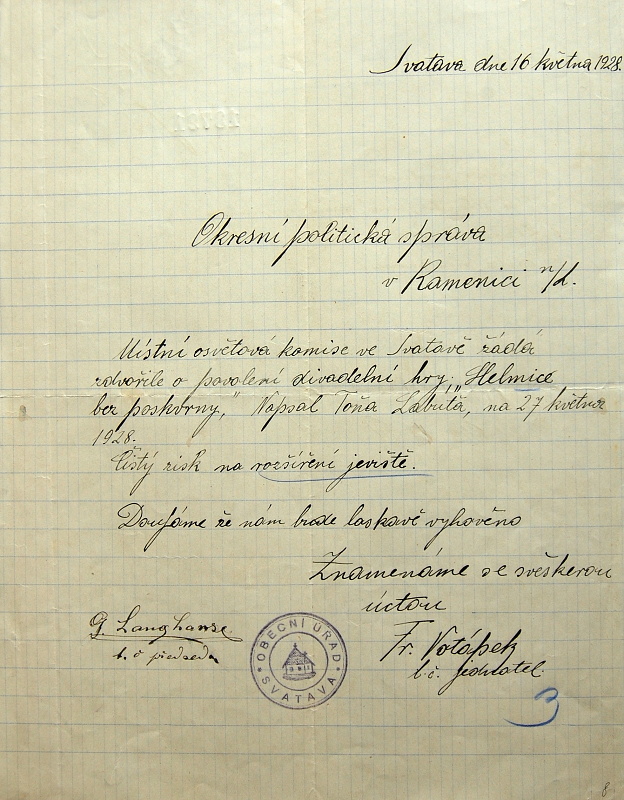 Svatava dne 16 května 1928.
Okresní politická správa
v Kamenici n/L.
Místní osvětová komise ve Svatavě žádá
zdvořile o povolení divadelní hry: „Helmice
bez poskvrny," Napsal Toňa Labuťa, na 27 května
1928.
Čistý zisk na rozšíření jeviště.
Doufáme že nám bude laskavě vyhověno
Znamenáme se vší škerou
úctou
G. Langhanse
t. č předseda
Fr. Votápek
t. č. jednatel.
OBECNÍ ÚŘAD
SVATAVA
3
8